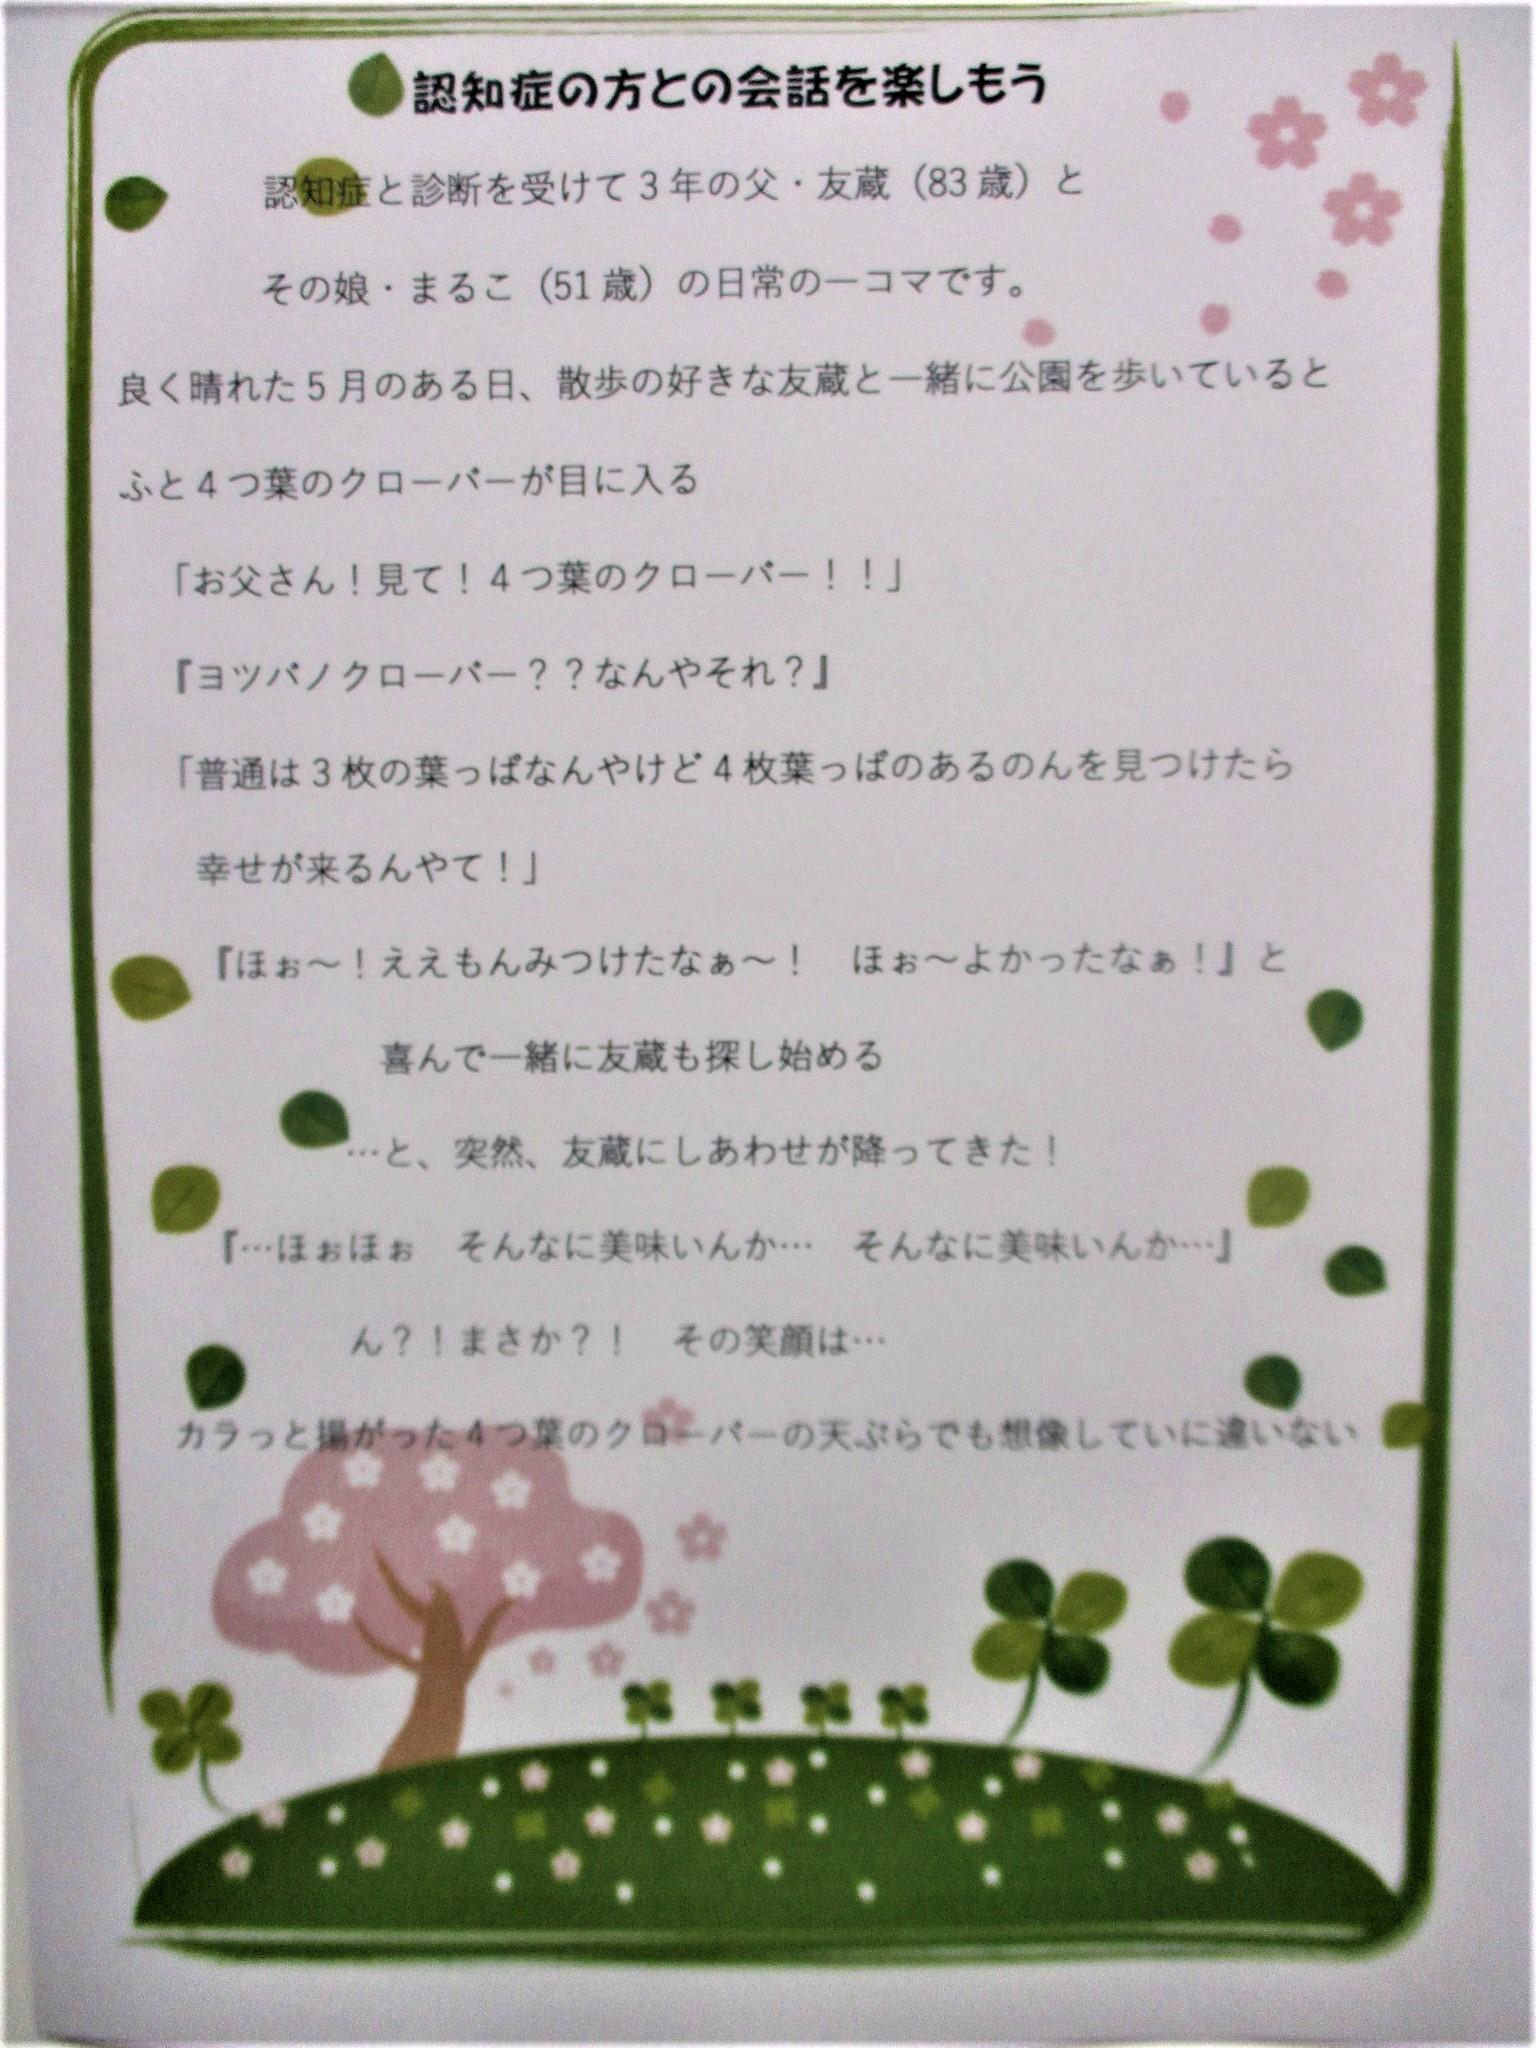 認知症の方との会話を楽しもう
認知症と診断を受けて3年の父・友蔵（83歳）と
その娘・まるこ（51歳）の日常の一コマです。
良く晴れた5月のある日、散歩の好きな友蔵と一緒に公園を歩いていると
ふと4つ葉のクローバーが目に入る
「お父さん！見て！4つ葉のクローバー！！」
『ヨツバノクローバー？？なんやそれ？』
「普通は3枚の葉っぱなんやけど4枚葉っぱのあるのんを見つけたら
幸せが来るんやて！」
『ほぉ～！ええもんみつけたなぁ～！　ほぉ～よかったなぁ！』と
喜んで一緒に友蔵も探し始める
…と、突然、友蔵にしあわせが降ってきた！
『…ほぉほぉ　そんなに美味いんか…　そんなに美味いんか…』
ん？！まさか？！　その笑顔は…
カラっと揚がった4つ葉のクローバーの天ぷらでも想像していに違いない